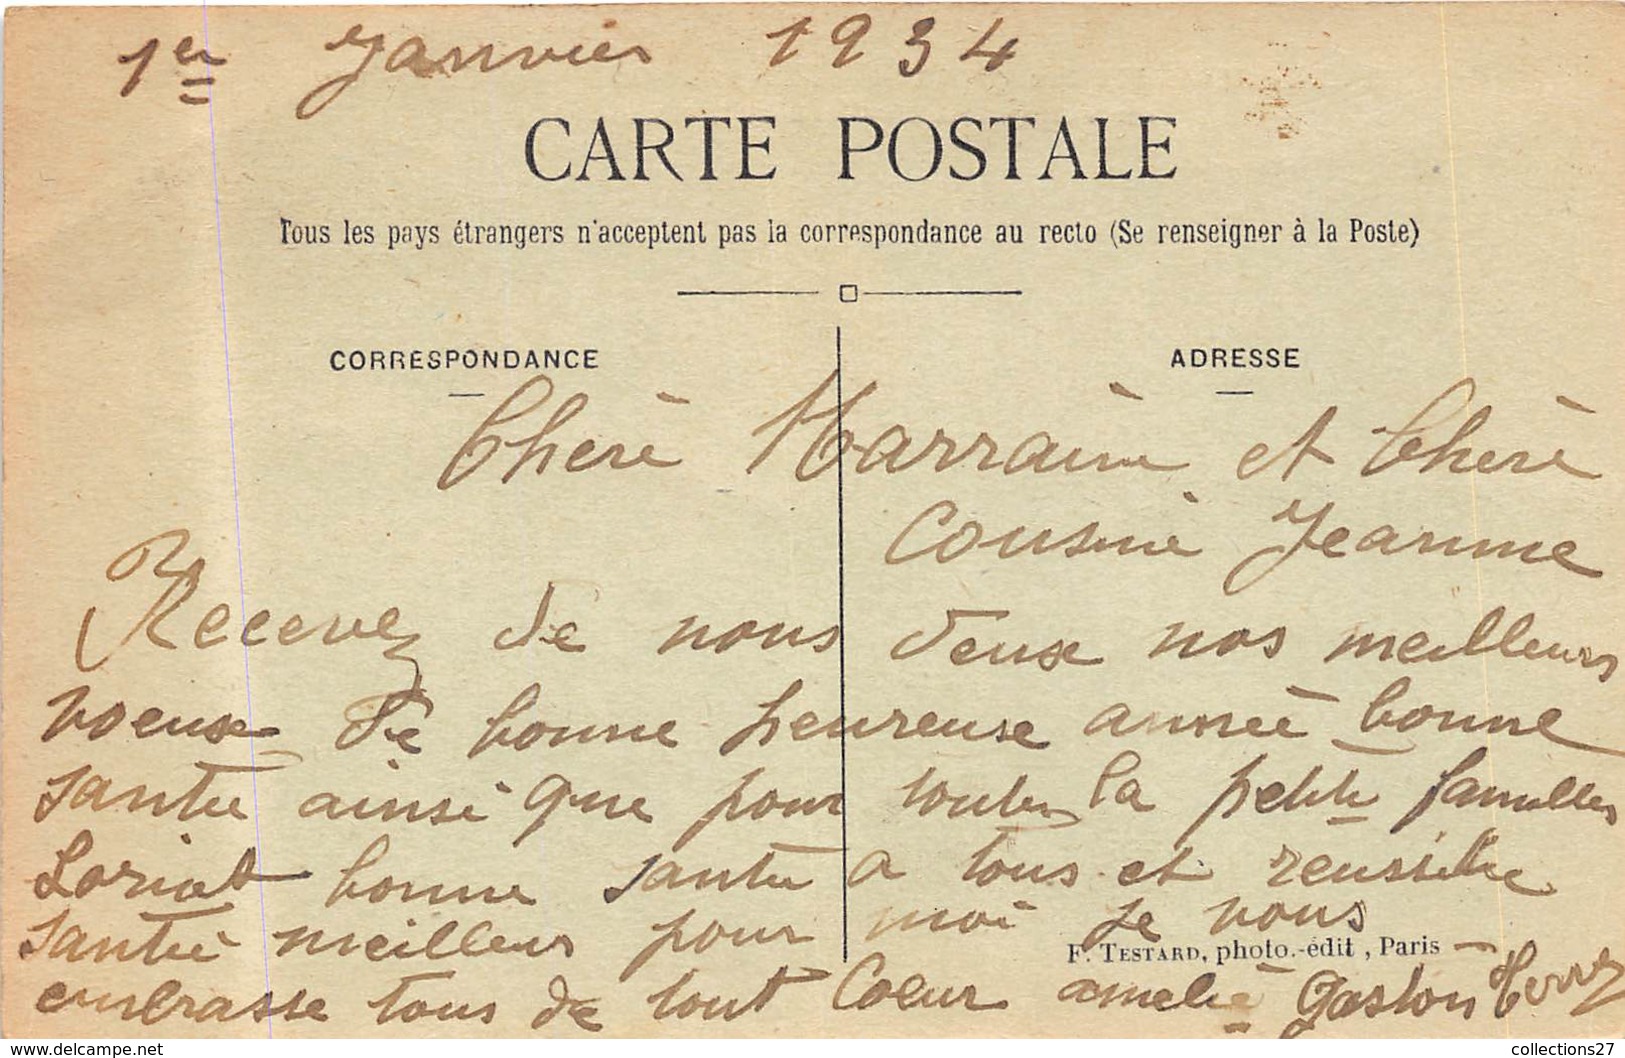 1er Janvier 1934
CARTE POSTALE
Tous les pays étrangers n'acceptent pas la correspondance au recto (Se renseigner à la Poste)
CORRESPONDANCE
ADRESSE
Cherè Marraine et Cherè
Cousinè Jeanne
Recevez de nous deux nos meilleurs
voeux de bonne heureuse anneè bonne
Santée ainsi que pour toutes la petite familles
Loriot bonne Santée a tous et reussitee
Santeè meilleur pour moi je vous
F. TESTARD, photo.-édit, Paris
embrasse tous de tout Coeur ameliè Gaston
delcampe.net
collections27